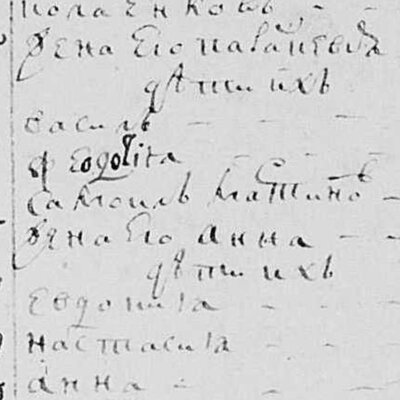 полаенковъ
жена его палагѣевїа
дѣти ихъ
василь
феодосіꙗ
самоилъ мартиновъ
жена его анна
дѣти ихъ
евдокиꙗ
настасиꙗ
анна